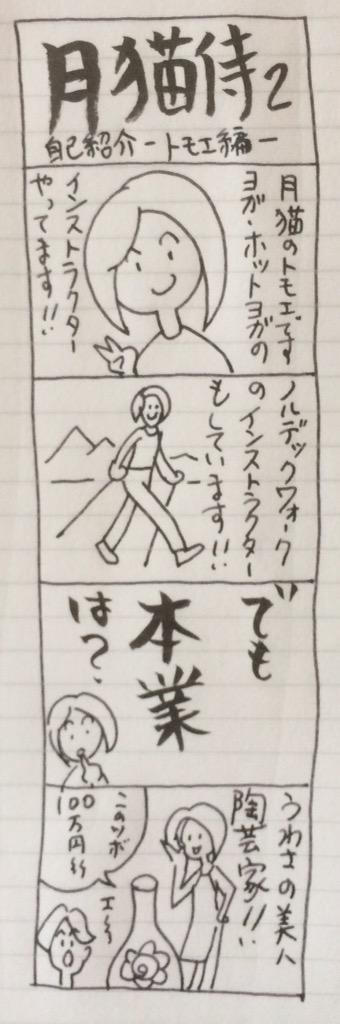 月猫侍2
自己紹介ートモエ編ー
月猫のトモエです
ヨガ・ホットヨガの
インストラクター
やってます!!
ノルデックウォーク
のインストラクター
もしています!!
でも
本業
は?
うわさの美人
陶芸家!!
このツボ
100万円〜
エ〜